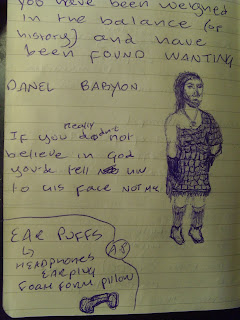 you have been weighed
in the balance (or
history) and have
been FOUND WANTING
DANEL BABYLON
really
If you didn't
believe in God
you'de tell him
to his face NOT ME.
EAR PUFFS
HEADPHONES
EARPLUG
FOAM FORM PILLOW